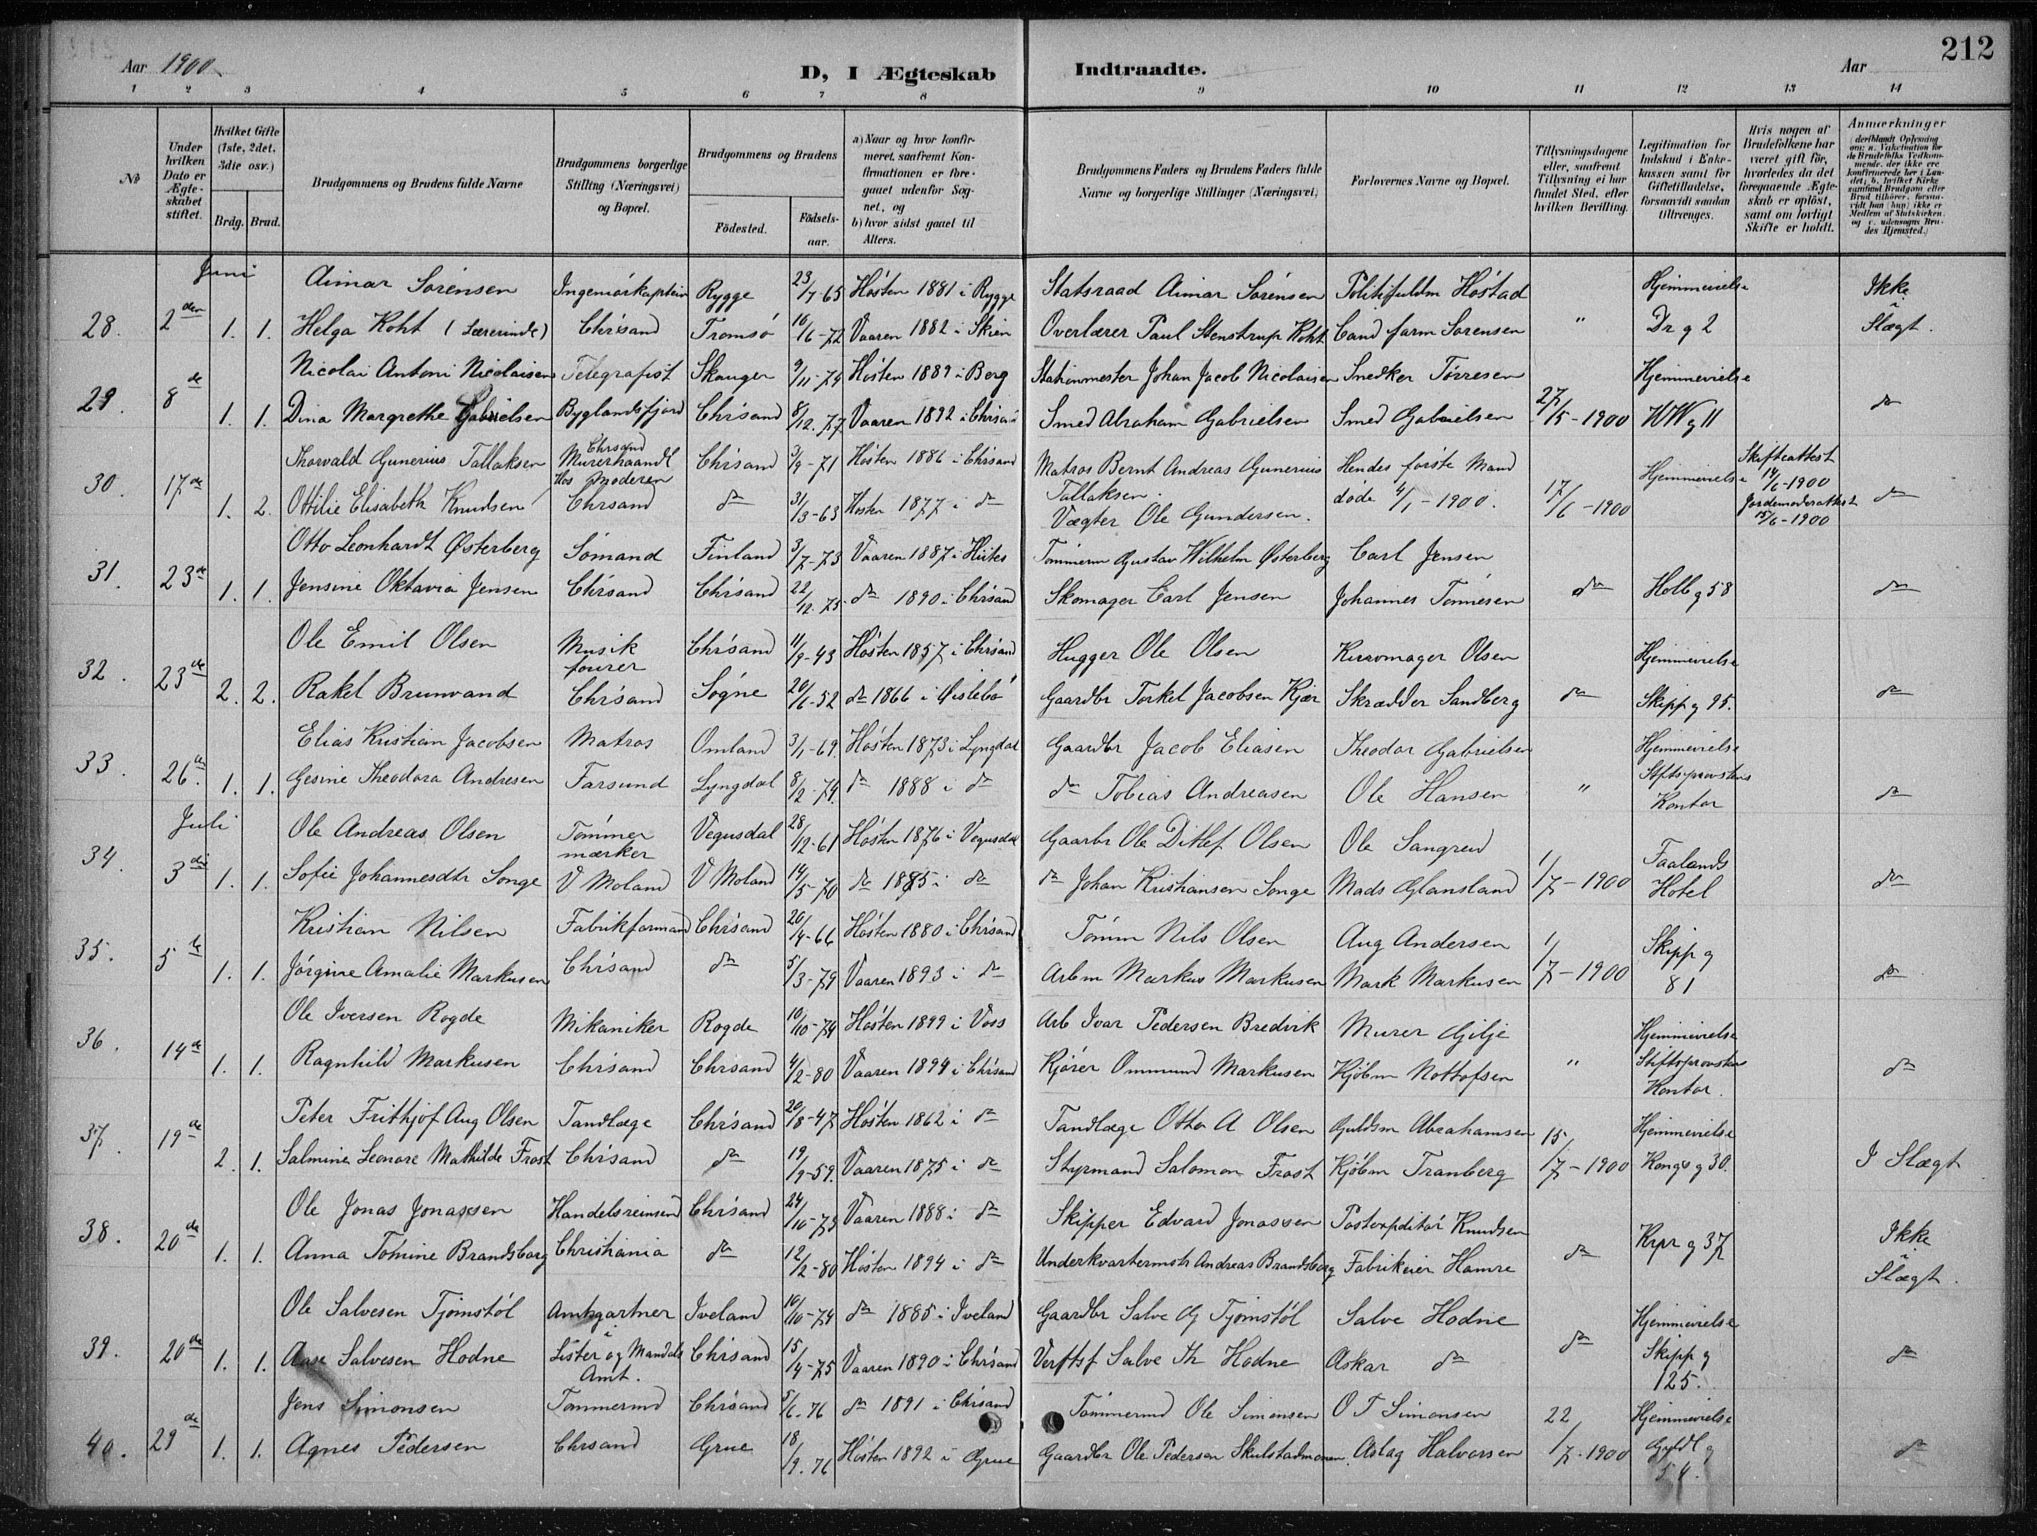 Aar 1900
D, I Ægteskab
Indtraadte.
Aar
212
1 2 3 4 5 6 7 8 9 10 11 12 13 14
No
Under hvilken Dato er Ægteskabet stiftet.
Hvilket Gifte (1ste, 2det, 3die osv.)
Brdg. Brud.
Brudgommens og Brudens fulde Navne
Brudgommens borgerlige Stilling (Næringsvei) og Bopæl.
Brudgommens og Brudens
Födested.
Födselsaar.
a) Naar og hvor konfirmeret, saafremt Konfirmationen er foregaaet udenfor Sognet, og
b) hvor sidst gaaet til Alters.
Brudgommens Faders og Brudens Faders fulde Navne og borgerlige Stillinger (Næringsvei)
Forlovernes Navne og Bopæl.
Tillysningsdagene eller, saafremt Tillysning ei har fundet Sted, efter hvilken Bevilling.
Legitimation for Indskud i Enkekassen samt for Giftetilladelse, forsaavidt saadan tiltrænges.
Hvis nogen af Brudefolkene har været gift før, hvorledes da det foregaaende Ægteskab er oplöst, samt om lovligt Skifte er holdt.
Anmærkninger
Juni
28. 2den Aimar Sörensen Ingeniörkaptein Rygge 23/7-65 Hösten 1881 i Rygge Statsraad Aimar Sörensen Politifuldm Höstad Hjemmevielse Ikke i Slægt.
1. 1. Helga Koht (Lærerinde) Chrsand Tromsö 16/6-72 Vaaren 1882 i Skien Overlærer Paul Stenstrup Koht Cand farm Sorensen " Dr g 2
29. 8de Nicolai Antoni Nicolaisen Telegrafist Skauger 9/11-74 Hösten 1889 i Berg Stationmester Johan Jacob Nicolaisen Snedker Törresen Hjemmevielse
1. 1. Dina Margrethe Gabrielsen Byglandsfjord Chrsand 8/12-77 Vaaren 1892 i Chrsand Smed Abraham Gabrielsen Smed Gabrielsen 27/5-1900 WW g 11 do
30. 17de Thorvald Gunerius Tallaksen Chrsand Murerhaandt hos Moderen Chrsand 3/9-71 Hösten 1886 i Chrsand Matros Bernt Andreas Gunerius Tallaksen. Hendes förste Mand döde 4/1-1900. Hjemmevielse Skifteattest 14/6-1900
1. 2. Ottilie Elisabeth Knudsen Chrsand do 31/3-63 Hösten 1877 i do Vægter Ole Gundersen. 17/6-1900 Jordemoderattest 15/6-1900 do
31. 23de Otto Leonhardt Østerberg Sömand Finland 3/7-73 Vaaren 1887 i Hiites Tömmerm Gustav Wilhelm Østerberg Carl Jensen
1. 1. Jensine Oktavia Jensen Chrsand Chrsand 22/12-75 do 1890 i Chrsand Skomager Carl Jensen Johannes Tönnesen do Holb g 58 do
32. 23de Ole Emil Olsen Musikfourer Chrsand 11/9-43 Hösten 1857 i Chrsand Hugger Ole Olsen Kurvmager Olsen Hjemmevielse
2. 2. Rakel Brunvand Chrsand Søgne 20/6-52 do 1866 i Øislebö Gaardbr Torkel Jacobsen Kjær Skrædder Sandberg do Skipp g 95. do
33. 26de Elias Kristian Jacobsen Matros Omland 3/1-69. Hösten 1873 i Lyngdal Gaardbr Jacob Eliasen Theodor Gabrielsen Hjemmevielse
1. 1. Gesine Theodora Andresen Farsund Lyngdal 8/2-74. do 1888 i do do Tobias Andreasen Ole Hansen " Stiftsprovstens Kontor do
Juli
34. 3die Ole Andreas Olsen Tömmermærker Vegusdal 28/12-61 Hösten 1876 i Vegusdal Gaardbr Ole Ditlef Olsen Ole Sangreid
1. 1. Sofie Johannesdtr Songe V Moland V Moland 14/5-70 do 1885 i do do Johan Kristiansen Songe Mads Glansland 1/7-1900 Faalands Hotel do
35. 5te Kristian Nilsen Fabrikformand Chrsand 20/4-66 Hösten 1880 i Chrsand Tömm Nils Olsen Aug Andersen
1. 1. Jörgine Amalie Markusen Chrsand do 5/3-79 Vaaren 1893 i do Arbm Markus Markusen Mark Markusen 1/7-1900 Skipp g 81 do
36. 14de Ole Iversen Rogde Mikaniker Rogde 10/10-74 Hösten 1899 i Voss Arb Ivar Pedersen Bredvik Murer Gilje Hjemmevielse
1. 1. Ragnhild Markusen Chrsand Chrsand 4/2-80 Vaaren 1894 i Chrsand Kjörer Ommund Markusen Kjöbm Nottofsen " Stiftsprovsten Kontor. do
37. 19de Peter Frithjof Aug Olsen Tandlæge Chrsand 20/8-47 Hösten 1862 i do Tandlæge Otto A Olsen Guldsm Abrahamsen Hjemmevielse
2. 1. Salmine Leonore Mathilde Frost Chrsand do 19/9-59. Vaaren 1875 i do Styrmand Salomon Frost Kjöbm Tranberg 15/7-1900 Kongs g 30. I Slægt
38. 20de Ole Jonas Jonassen Handelsreisend Chrsand 24/10-73 Vaaren 1888 i do Skipper Edvard Jonassen Postexpeditör Knudsen Ikke i Slægt.
1. 1. Anna Tomine Brandsborg Christiania do 12/2-80 Hösten 1894 i do Underkvartermstr Andreas Brandsberg Fabrikeier Hamre do Krpr g 37
39. 20de Ole Salvesen Tjomstöl Amtsgartner Iveland 10/10-74 do 1885 i Iveland Gaardbr Salve Tjomstöl Salve Hodne Hjemmevielse
1. 1. Aase Salvesen Hodne i Lister og Mandals Amt. Chrsand 15/4-75 Vaaren 1890 i Chrsand Verftsf Salve Th Hodne Askar do do Skipp g 125. do
40. 29de Jens Simonsen Tömmermd Chrsand 5/6.76 do 1891 i Chrsand Tömmermd Ole Simonsen O T Simonsen Hjemmevielse
1. 1. Agnes Pedersen Chrsand Grue 18/9.76 Hösten 1892 i Grue Gaardbr Ole Pedersen Skulstadmoen Aslag Halvorsen 22/7-1900 Gyldl g 54. do